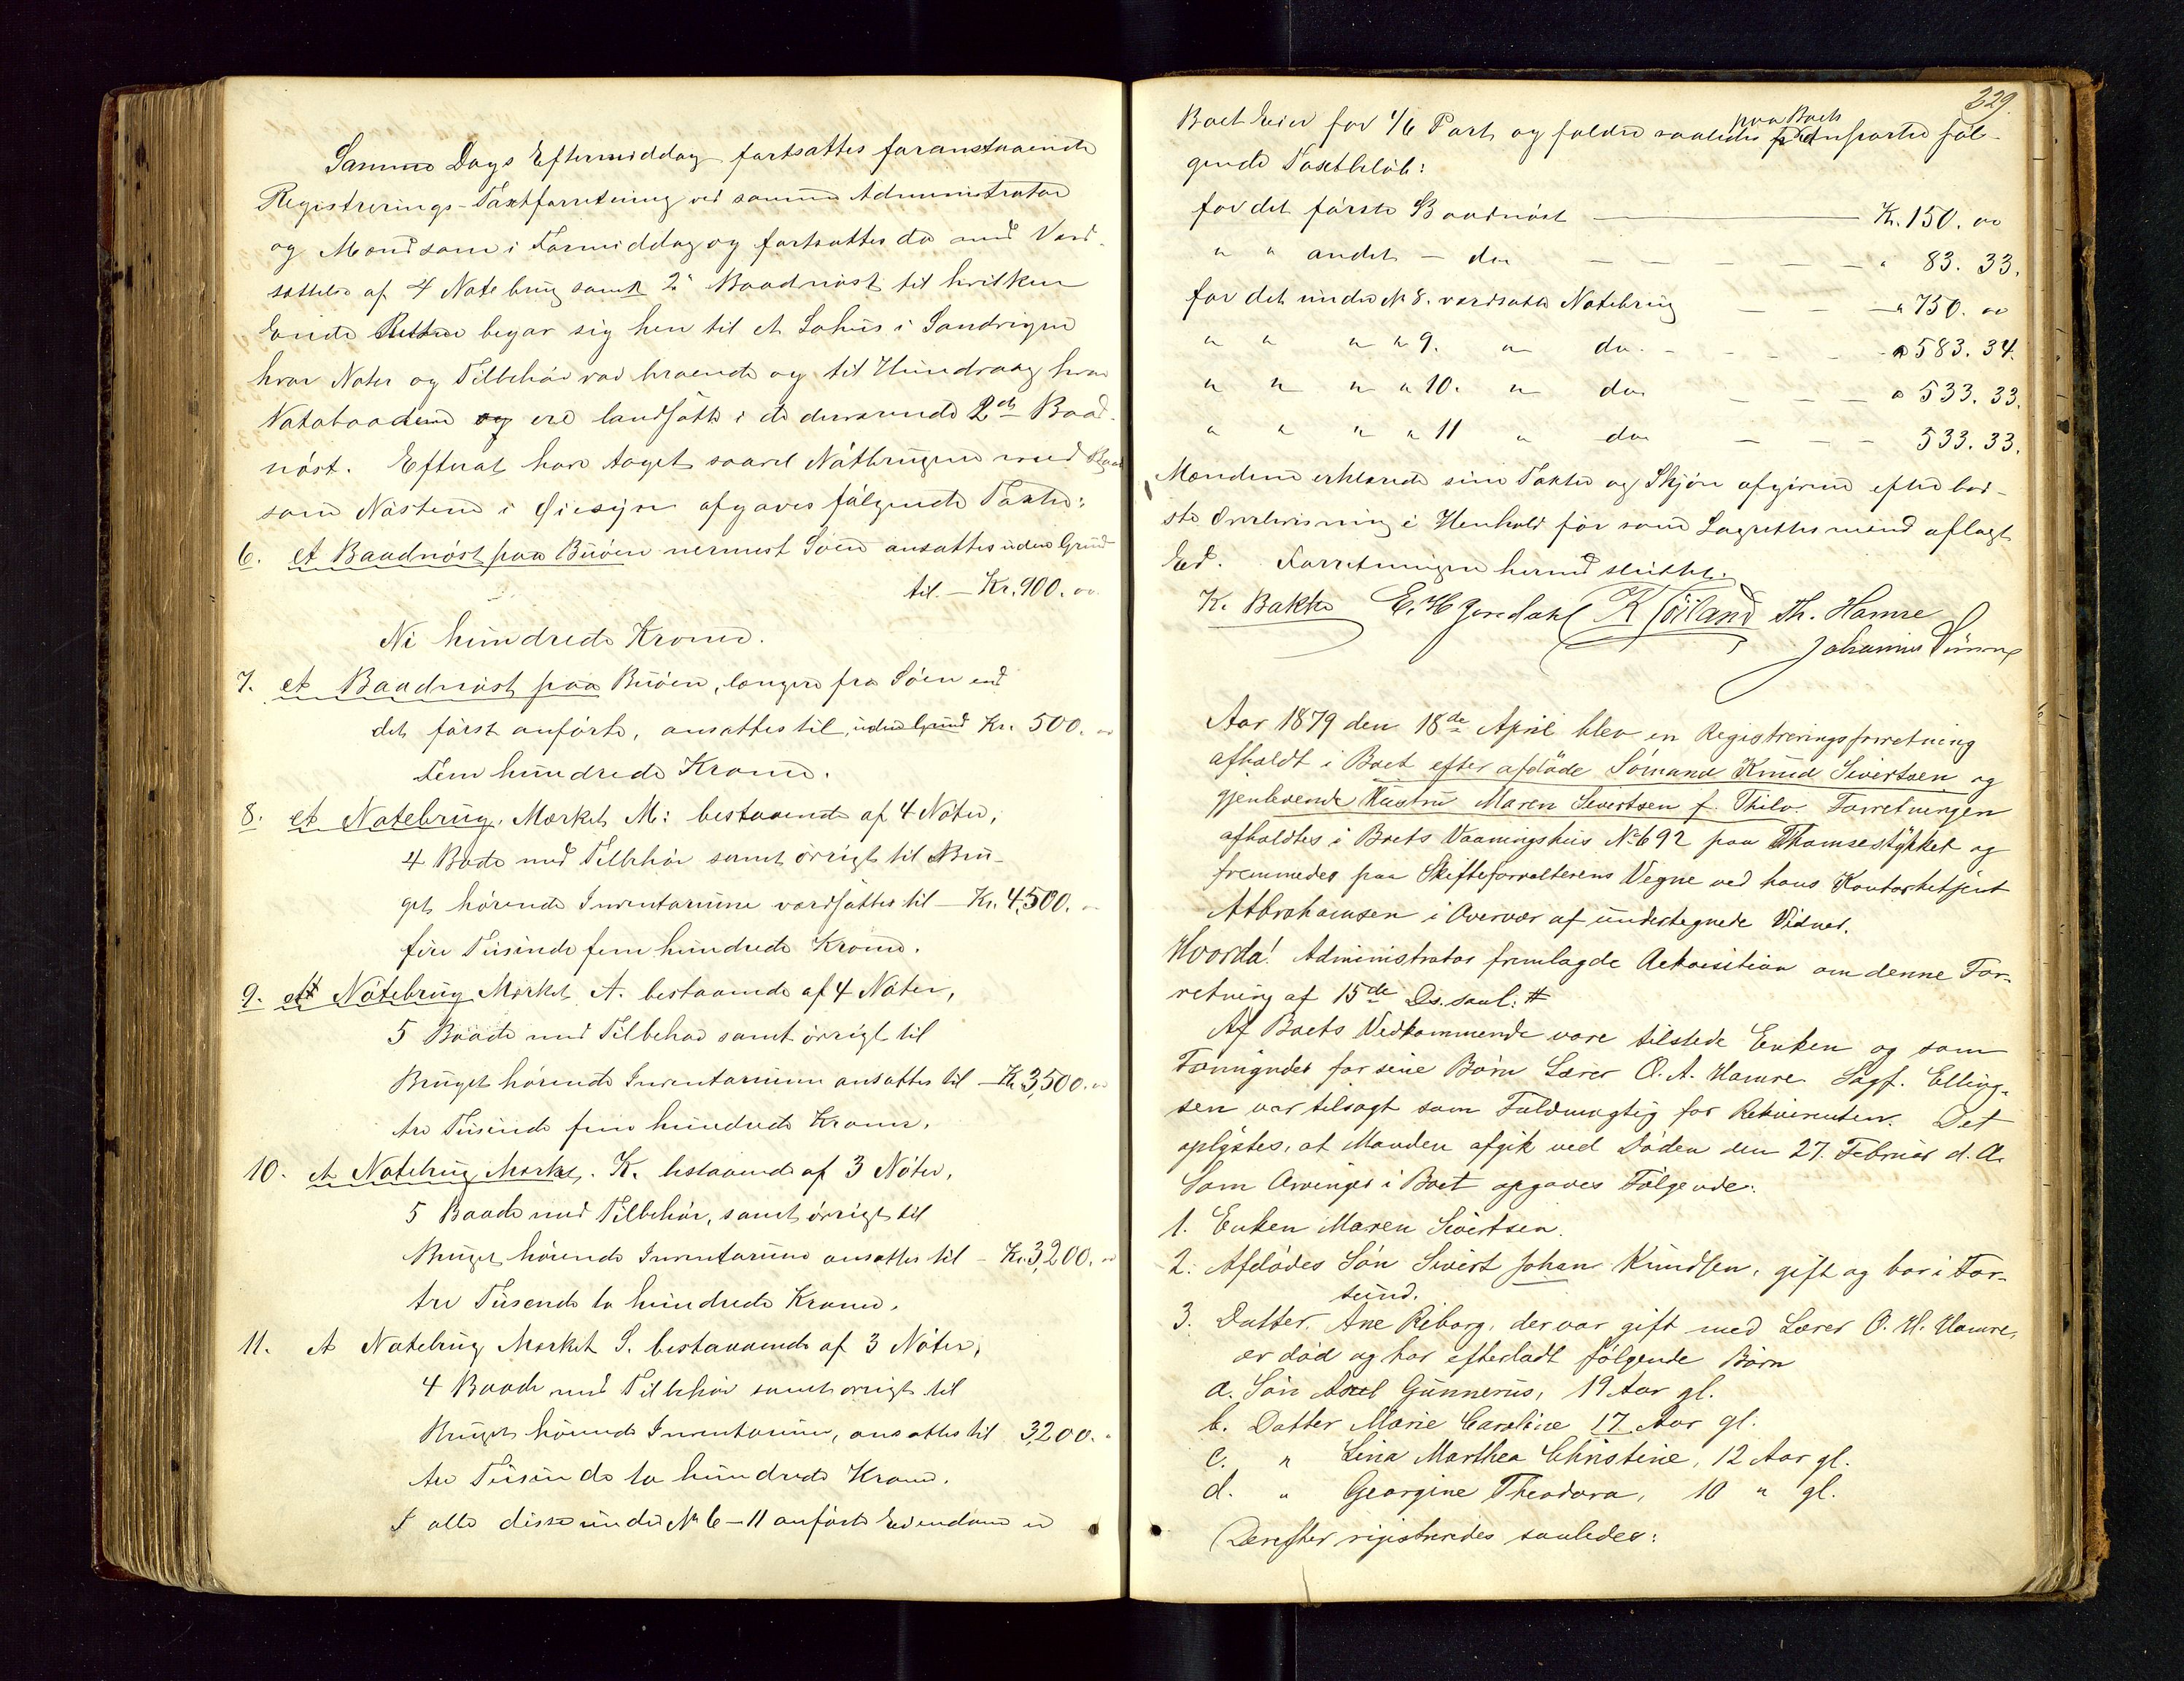 Samme Dags Eftermiddag fortsattes foranstaaende
Registrerings-Taxtforretning ved samme Administrator
og Mænd som i Formiddag og fortsattes da med Værd-
sættelse af 4 Notebrug samt 2 Baadnøst til hvilken
Ende Retten begav sig hen til et Søhus i Sandvigen
hvor Nøter og Tilbehør var beroende og til Hundvaag hvor
Notebaadene og ere landsatte i de derværende 2de Baad-
nøst. Efterat have taget saavel Nótbrugene med Baade
som Nøstene i Øiesyn afgaves følgende Taxter:
6. et Baadnøst paa Buøen nærmest Søen ansattes uden Grund
til - Kr. 900. 00
Ni hundrede Kroner.
7. et Baadnøst paa Buøen, længere fra Søen end
det først anførte, ansattes til, uden Grund Kr. 500. 00
Fem hundrede Kroner.
8. et Notebrug, Mærket M: bestaaende af 4 Nøter,
4 Bade med Tilbehør samt øvrigt til Bru-
get hørende Inventarium værdsattes til - Kr. 4,500. 00
fire Tusinde fem hundrede Kroner.
9. et Nótebrug Mærket A. bestaaende af 4 Nøter,
5 Baade med Tilbehør samt øvrigt til
Bruget hørende Inventarium ansattes til - Kr. 3,500. 00
tre Tusinde fem hundrede Kroner.
10. et Notebrug Mærket. K. bestaaende af 3 Nøter,
5 Baade med Tilbehør, samt øvrigt til
Bruget hørende Inventarium ansattes til - Kr. 3,200. 00
tre Tusende to hundrede Kroner.
11. et Notebrug Mærket S. bestaaende af 3 Nøter,
4 Baade med Tilbehør samt øvrigt til
Bruget hørende Inventarium, ansattes til 3,200. "
tre Tusinde to hundrede Kroner.
I alle disse under No 6-11 anførte Eiendome er
229.
Boet Eier for 1/6 Part og falder saaledes paa Boets følgende
gende Taxtbeløb:
for det første Baadnøst — Kr. 150. 00
" " andet - do — " 83. 33.
for det under No 8. værdsatte Notebrug — " 750. 00
" " " " 9. " do. — " 583. 34.
" " " " 10. " do. — " 533. 33.
" " " " 11 " do — 533. 33.
Mændene erklærede sine Taxter og Skjøn afgivne efter bed-
ste Overbevisning i Henhold før som Lagrettesmænd aflagt
Ed. Forretningen hermed sluttet.
K. Bakke E. H. Jonsdahl Th. Hamre
Johannes
Aar 1879 den 18de April blev en Registreringsforretning
afholdt i Boet efter afdøde Sømand Knud Sivertsen og
gjenlevende Hustru Maren Sivertsen f. Thilo. Forretningen
afholdtes i Boets Vaaningshus No 692 paa Thomsestykket og
fremmedes paa Skifteforvalterens Vegne ved hans Kontorbetjent
Abrahamsen i Overvær af undertegnede Vidner.
Hvorda! Administrator fremlagde Rekvisition om denne For-
retning af 15de Ds. saal: #
Af Boets Vedkommende vare tilstede Enken og som
Formynder for sine Børn Lærer O. A. Hamre. Sagf. Elling-
sen var tilsagt som Fuldmægtig for Rekvirenten. Det
oplystes, at Manden afgik ved Døden den 27. Februar d. A.
Som Arvinger i Boet opgaves Følgende:
1. Enken Maren Sivertsen.
2. Afdødes Søn Sivert Johan Knudsen, gift og bor i Far-
sund.
3. Datter. Ane Riborg, der var gift med Lærer O. A. Hamre,
er død og har efterladt følgende Børn
a. Søn Axel Gunnerus, 19 Aar gl.
b. Datter Marie Caroline 17 Aar gl.
c. " Lina Marthea Christine, 12 Aar gl.
d. " Georgine Theodora, 10 " gl.
Derefter registreredes saaledes: